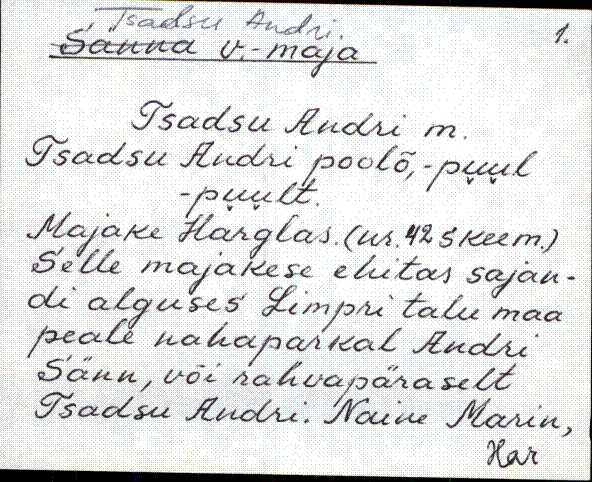 Tsadsu Andri.
1.
Sänna v.-maja
Tsadsu Andri m.
Tsadsu Andri poolõ, -pu̬u̬l
-pu̬u̬lt.
Majake Harglas. (nr. 42 skeem.)
Selle majakese ehitas sajan-
di alguses Limpri talu maa
peale nahaparkal Andri
Sänn, või rahvapäraselt
Tsadsu Andri. Naine Marin,
Har